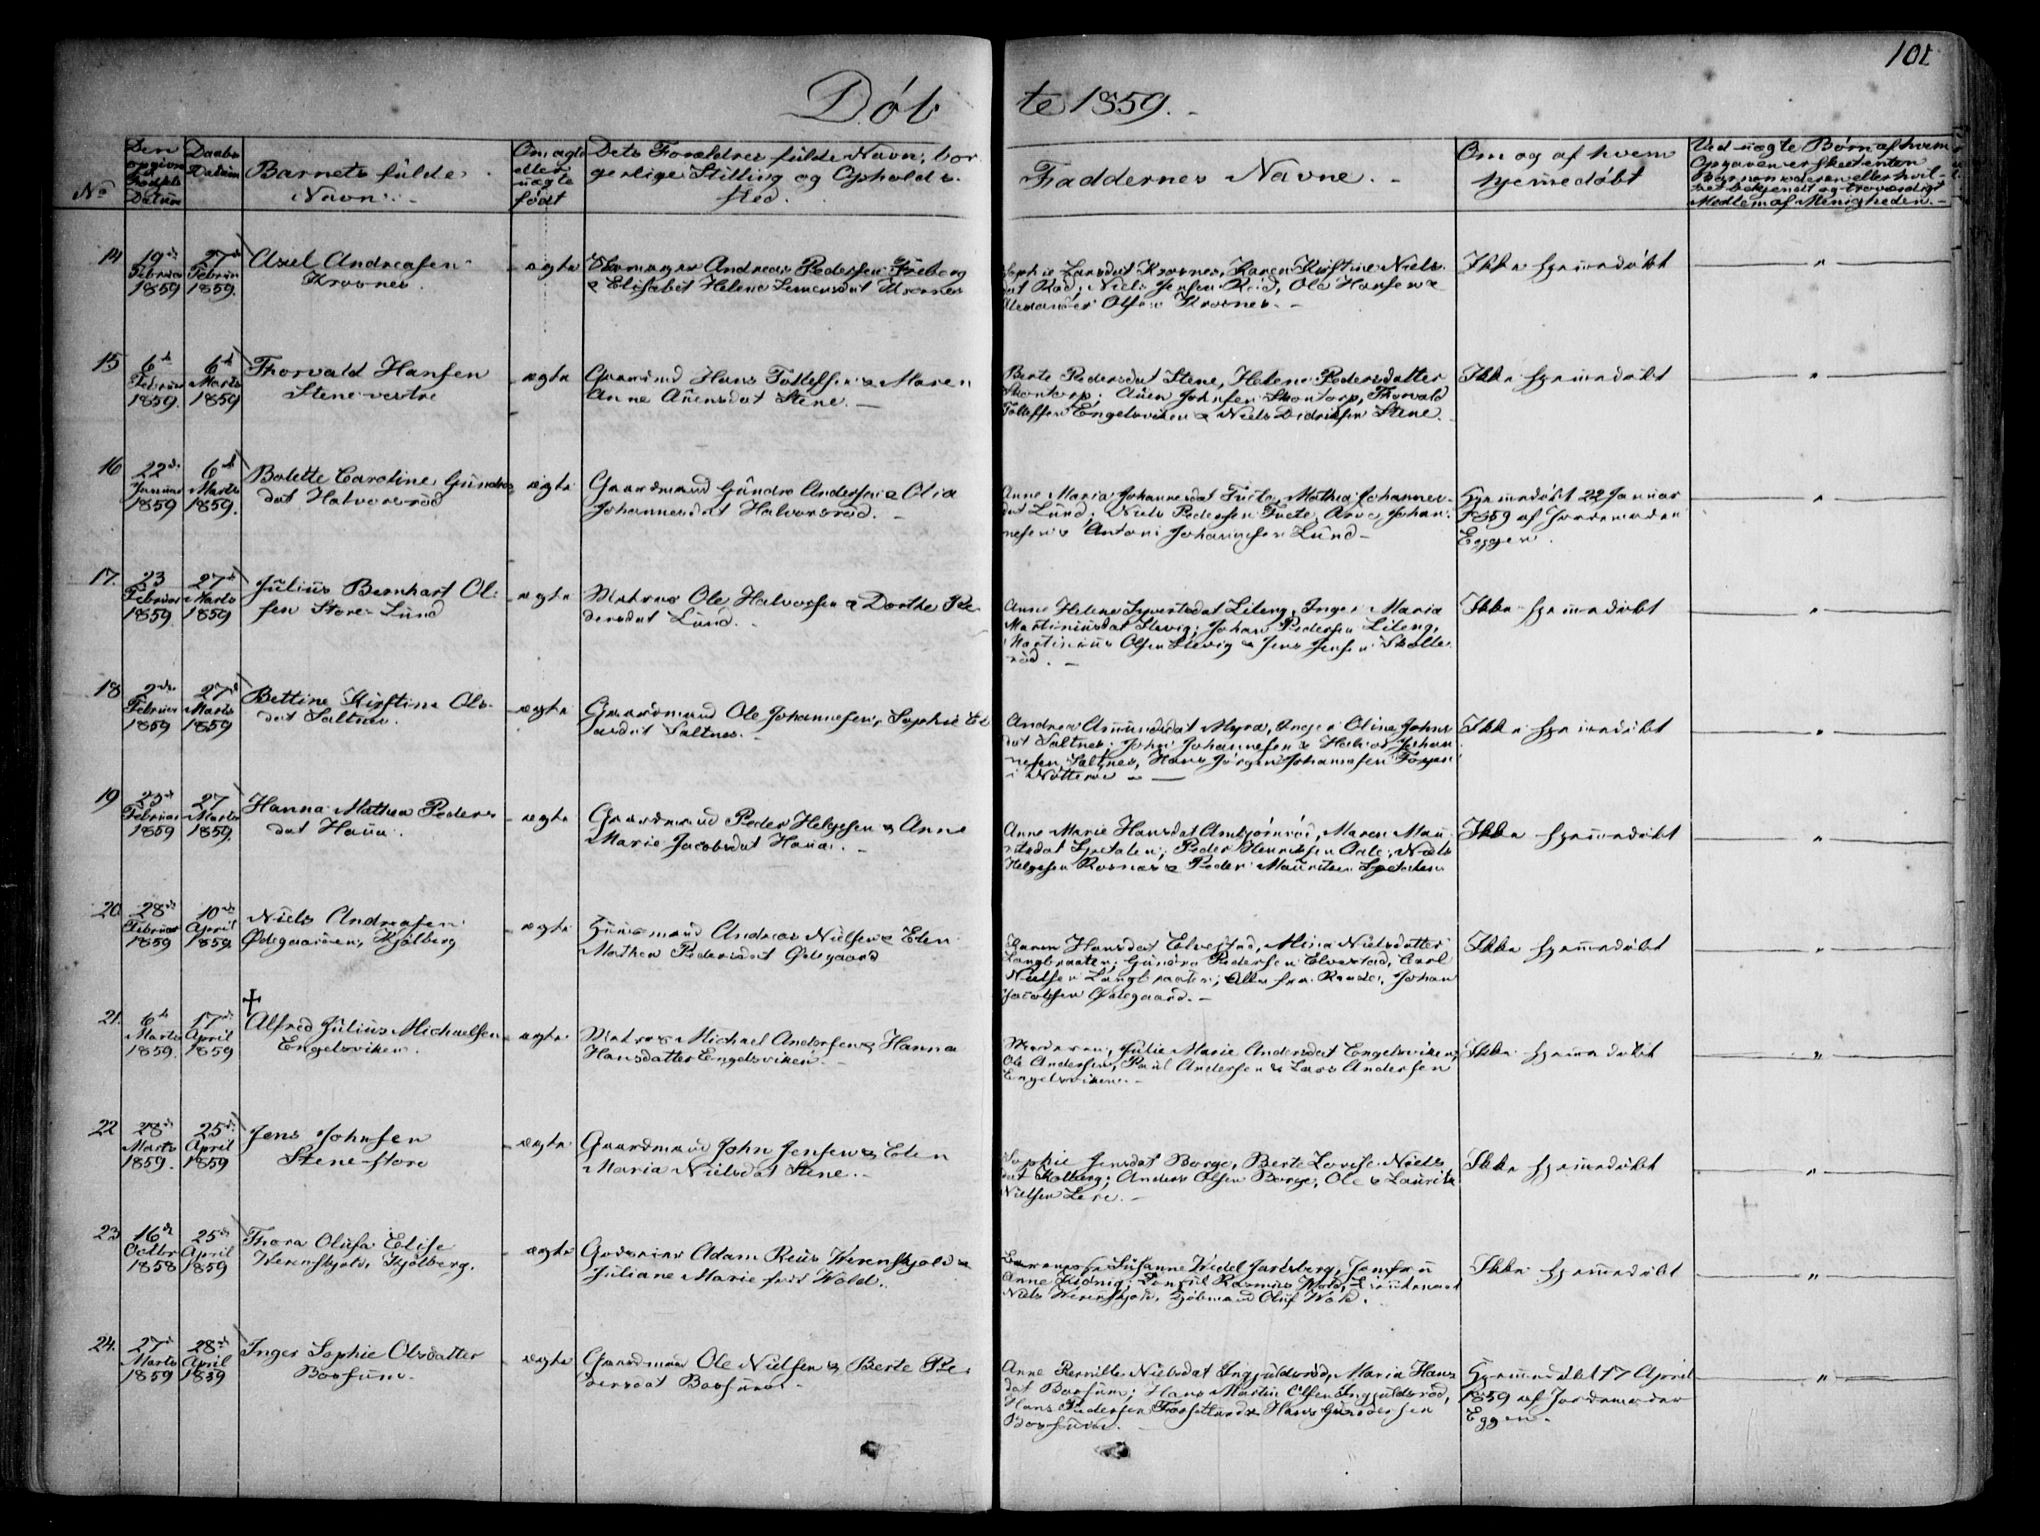 101
Døbte 1859.
No
Den opgivne Fødsels Datum
Daabs Datum
Barnets fulde Navn.
Om ægte eller uægte født
Dets Forældres fulde Navn, borgerlige Stilling og Opholdssted.
Faddernes Navne.
Om og af hvem hjemmedøbt
Ved uægte Børn af hvem Opgaven er skeet enten Barnemoderen eller hvilket bekjendt og troværdigt Medlem af Menigheden.
14 19de Februar 1859 27de Februar 1859.
Axel Andreasen
Kraknes
ægte
Andreas Pedersen Freberg
& Elisabet Helene
Sophie Larsdat Karen Kirstine Niels
dat Rød, Niels Jensen Rød, Ole Hansen &
Olsen
Ikke hjemmedøbt
15 6te Februar 1859. 6te Marts 1859
Thorvald Hansen
Stene vestre
ægte
Gaardmd Hans Tollefsen & Maren
Anne Auensdat Stene.
Berte Pedersdat Stene, Helene Pedersdatter
Skontorp; Auen Johnsen Skontorp, Thorvald
Tollefsen Engelsviken & Niels Didriksen Stene.
Ikke hjemmedøbt
16 22de Januar 1859 6te Marts 1859.
Bolette Caroline Gundros
dat Halvorsrød
ægte
Gaardmand Gundro Andersen & Olia
Johannesdat Halvorsrød.
Anne Maria Johannesdat Mathea Johannes
dat Lund, Niels Pedersen Johan
nesen & Antoni Johannesen Lund
Hjemmedøbt 22 Januar
1859 af Jordemoder
Eggen.
17. 23 Februar 1859. 27de Marts 1859
Julius Bernhart Ol
sen Store-Lund
ægte
Matros Ole Halvorsen & Dorthe Pe
dersdat Lund.
Anne Helene Syvertsdat Lileng, Inger Maria
Martiniusdat Slevig; Johan Pedersen Lileng,
Martinius Olsen Slevig & Jens Jensen Skolte
rød.
Ikke hjemmedøbt
18 2den Februar 1859 27de Marts 1859
Bettine Kirstine Ols
dat Saltnes.
ægte
Gaardmand Ole Johannesen, Sophie
Saltnes.
Andrea Amundsdat Myra, Inger Oline Johns
dat Saltnes; John Johannesen & Johan
nesen Saltnes, Hans Jørgen Johannesen
i Nøtterøe
Ikke hjemmedøbt
19 25de Februar 1859 27 Marts 1859.
Hanna Mathea Peders
dat Haua.
ægte
Gaardmand Peder Helgesen & Anne
Marie Jacobsdat Haua.
Anne Marie Hansdat Ambjørnrød, Maren Mau
ritsdat Spetalen; Peder Henriksen Niels
Helgesen & Peder Mauritsen Spetalen
Ikke hjemmedøbt
20 28de Februar 1859 10de April 1859.
Niels Andreasen
Ødegaarden, Kjølberg
ægte
Huusmand Andreas Nielsen & Elen
Mathea Pedersdat Ødegaard
Karen Hansdat Elvestad, Mina Nielsdatter
Langbraaten; Gundro Pedersen Elvestad, Carl
Nielsen Langbraaten; Alle fra Johan
Jacobsen Ødegaard.
Ikke hjemmedøbt
21. 6te Marts 1859. 17de April 1859
✝
Alfred Julius Michaelsen
Engelsviken.
ægte
Matros Michael Andersen & Hanna
Hansdatter Engelsviken.
Moderen, Julie Marie Andersdat Engelsviken,
Ole Andersen, Paul Andersen & Lars Andersen
Engelsviken.
Ikke hjemmedøbt
22 28de Marts 1859. 25de April 1859
Jens Johnsen
Stene-store
ægte
Gaardmand John Jensen & Elen
Maria Nielsdat Stene.
Sophie Jensdat Borge, Berte Lovise Niels
dat Kolberg; Anders Olsen Borge, Ole & Laurits
Nielsen Lere.
Ikke hjemmedøbt
23 16de Octbr 1858 25de April 1859
Thora Olufa Elise
Werenskjold, Kjølberg.
ægte
Godseier Adam Reus Werenskjold &
Juliane Marie født Wold.
Baronesse Susanne Wedel Jarlsberg, Jomfru
Anne Konsul Rasmus Wold, Lieutenant
Niels Werenskjold, Oluf Wold.
Ikke hjemmedøbt
24. 27de Marts 1859 28de April 1859
Inger Sophie Olsdatter
Bossum.
ægte
Gaardmand Ole Nielsen & Berte Pe
dersdat Bossum.
Anne Pernille Nielsdat Ingjuldsrød, Maria Hans
dat Bossum; Hans Martin Olsen Ingjuldsrød,
Hans Pedersen & Hans Gundersen
Bossum.
Hjemmedøbt 17 April
1859 af Jordemoder
Eggen.